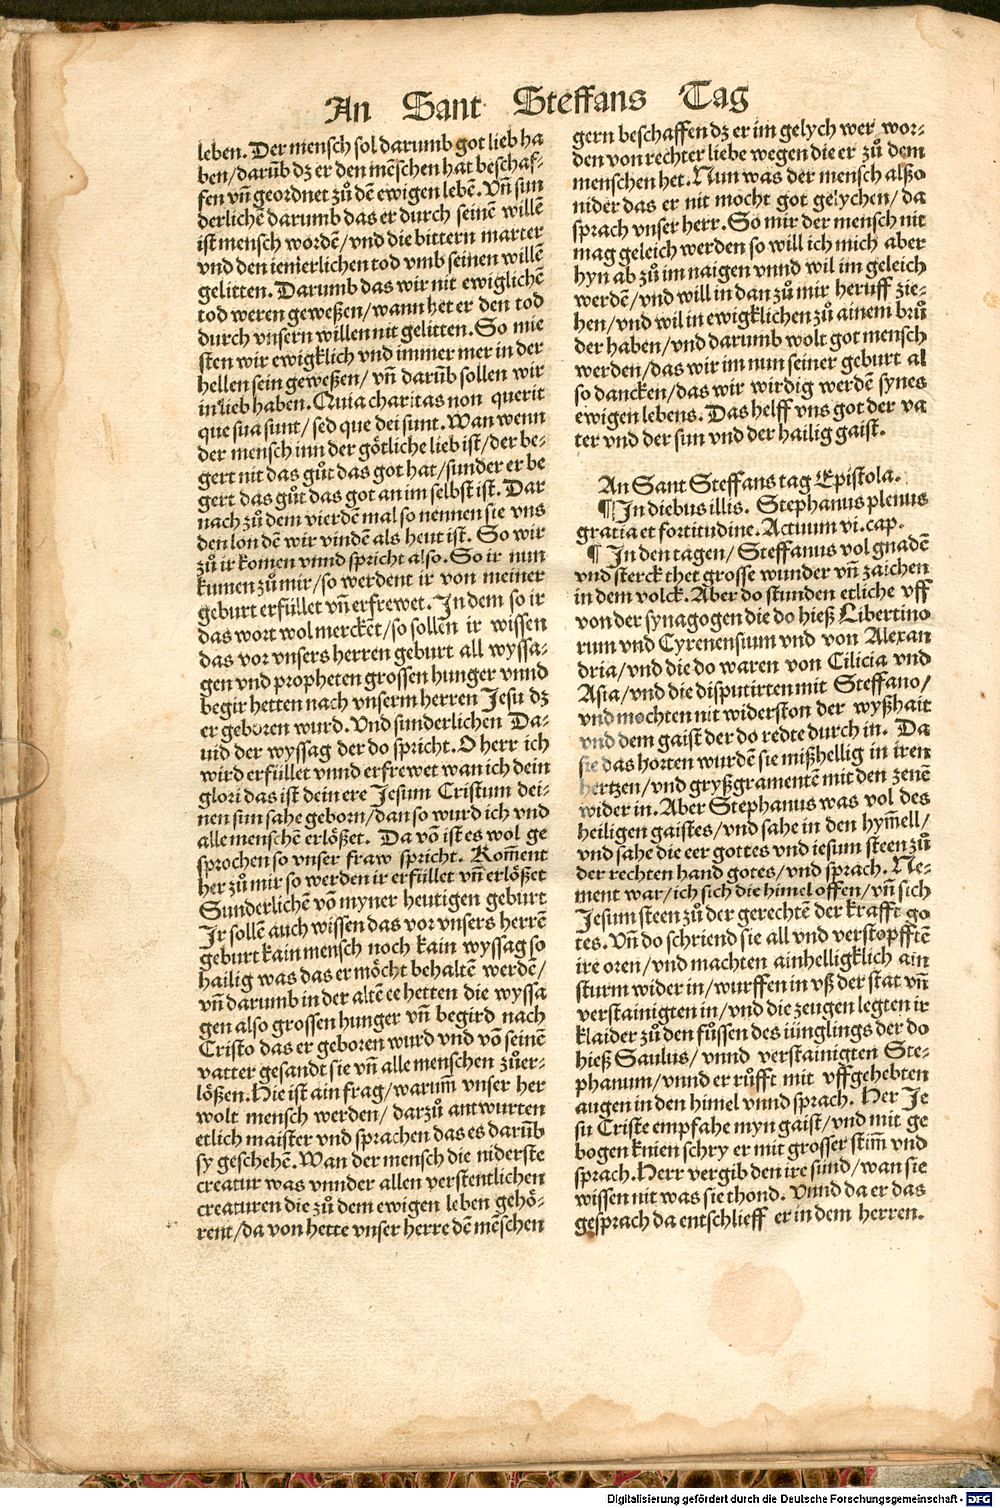 An Sant Steffans Tag
leben. Der mensch sol darumb got lieb ha
ben/darūb dz er den mēschen hat beschaf-
fen vn̄ geordnet zů dē ewigen lebē. Vn̄ sun
derlichē darumb das er durch seinē willē
ist mensch wordē/vnd die bittern marter
vnd den iemerlichen tod vmb seinen willē
gelitten. Darumb das wir nit ewiglichē
tod weren geweßen/wann het er den tod
durch vnsern willen nit gelitten. So mie
sten wir ewigklich vnd immer mer in der
hellen sein geweßen/ vn̄ darūb sollen wir
in lieb haben. Quia charitas non querit
que sua sunt/ sed que dei sunt. Wan wenn
der mensch inn der götliche lieb ist/der be-
gert nit das gůt das got hat/sunder er be
gert das gůt das got an im selbst ist. Dar
nach zů dem vierdē mal so nennen sie vns
den lon dē wir vindē als heut ist. So wir
zů ir komen vnnd spricht also. So ir nun
kumen zů mir/so werdent ir von meiner
geburt erfüllet vn̄ erfrewet. In dem so ir
das wort wol merckēt/so sollen ir wissen
das vor vnsers herren geburt all wyssa-
gen vnd propheten grossen hunger vnnd
begir hetten nach vnserm herren Jesu dz
er geboren wurd. Vnd sunderlichen Da-
uid der wyssag der do spricht. O herr ich
wird erfüllet vnnd erfrewet wan ich dein
glori das ist dein ere Jesum Cristum dei-
nen sun sahe geborn/dan so wurd ich vnd
alle menschē erlößet. Da vō ist es wol ge
sprochen so vnser fraw spricht. Kom̄ent
her zů mir so werden ir erfüllet vn̄ erlößet
Sunderlichē vō myner heutigen geburt
Ir sollē auch wissen das vor vnsers herrē
geburt kain mensch noch kain wyssag so
hailig was das er möcht behaltē werdē/
vn̄ darumb in der altē ee hetten die wyssa
gen also grossen hunger vn̄ begird nach
Cristo das er geboren wurd vnd vō seinē
vatter gesandt sie vn̄ alle menschen zůer-
lößen. Hie ist ain frag/warum̄ vnser her
wolt mensch werden/ darzů antwurten
etlich maister vnd sprachen das es darūb
sy geschehē. Wan der mensch die niderste
creatur was vnnder allen verstentlichen
creaturen die zů dem ewigen leben gehö-
rent/da von hette vnser herre dē mēschen
gern beschaffen dz er im gelych wer wor-
den von rechter liebe wegen die er zů dem
menschen het. Nun was der mensch alßo
nider das er nit mocht got gelychen/ da
sprach vnser herr. So mir der mensch nit
mag geleich werden so will ich mich aber
hyn ab zů im naigen vnnd wil im geleich
werdē/vnd will in dan zů mir heruff zie-
hen/vnd wil in ewigklichen zů ainem brů
der haben/vnd darumb wolt got mensch
werden/das wir im nun seiner geburt al
so dancken/das wir wirdig werdē synes
ewigen lebens. Das helff vns got der va
ter vnd der sun vnd der hailig gaist.
An Sant Steffans tag Epistola.
¶ In diebus illis. Stephanus plenus
gratia et fortitudine. Actuum vi. cap.
¶ In den tagen/ Steffanus vol gnadē
vnd sterck thet grosse wunder vn̄ zaichen
in dem volck. Aber do stunden etliche vff
von der synagogen die do hieß Libertino
rum vnd Cyrenensium vnd von Alexan
dria/vnd die do waren von Cilicia vnd
Asia/vnd die disputirten mit Steffano/
vnd mochten nit widerston der wyßhait
vnd dem gaist der do redte durch in. Da
sie das horten wurdē sie mißhellig in iren
hertzen/vnd gryßgramentē mit den zenē
wider in. Aber Stephanus was vol des
heiligen gaistes/vnd sahe in den hym̄ell/
vnd sahe die eer gottes vnd iesum steen zů
der rechten hand gotes/vnd sprach. Ne-
ment war/ich sich die himel offen/vn̄ sich
Jesum steen zů der gerechtē der krafft go
tes. Vn̄ do schriend sie all vnd verstopfftē
ire oren/vnd machten ainhelligklich ain
sturm wider in/wurffen in vß der stat vn̄
verstainigten in/vnd die zeugen legten ir
klaider zů den fůssen des iünglings der do
hieß Saulus/ vnnd verstainigten Ste-
phanum/vnnd er růfft mit vffgehebten
augen in den himel vnnd sprach. Her Je
su Criste empfahe myn gaist/vnd mit ge
bogen knien schry er mit grosser stim̄ vnd
sprach. Herr vergib den ire sünd/wan sie
wissen nit was sie thond. Vnnd da er das
gesprach da entschlieff er in dem herren.
Digitalisierung gefördert durch die Deutsche Forschungsgemeinschaft - DFG